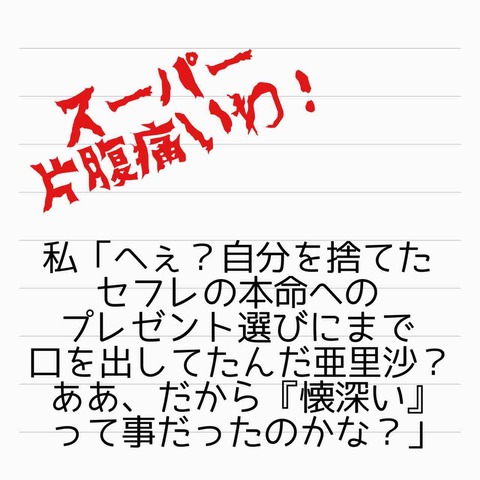 スーパー
片腹痛いわ！
私「へぇ？自分を捨てた
セフレの本命への
プレゼント選びにまで
口を出してたんだ亜里沙？
ああ、だから『懐深い』
って事だったのかな？」